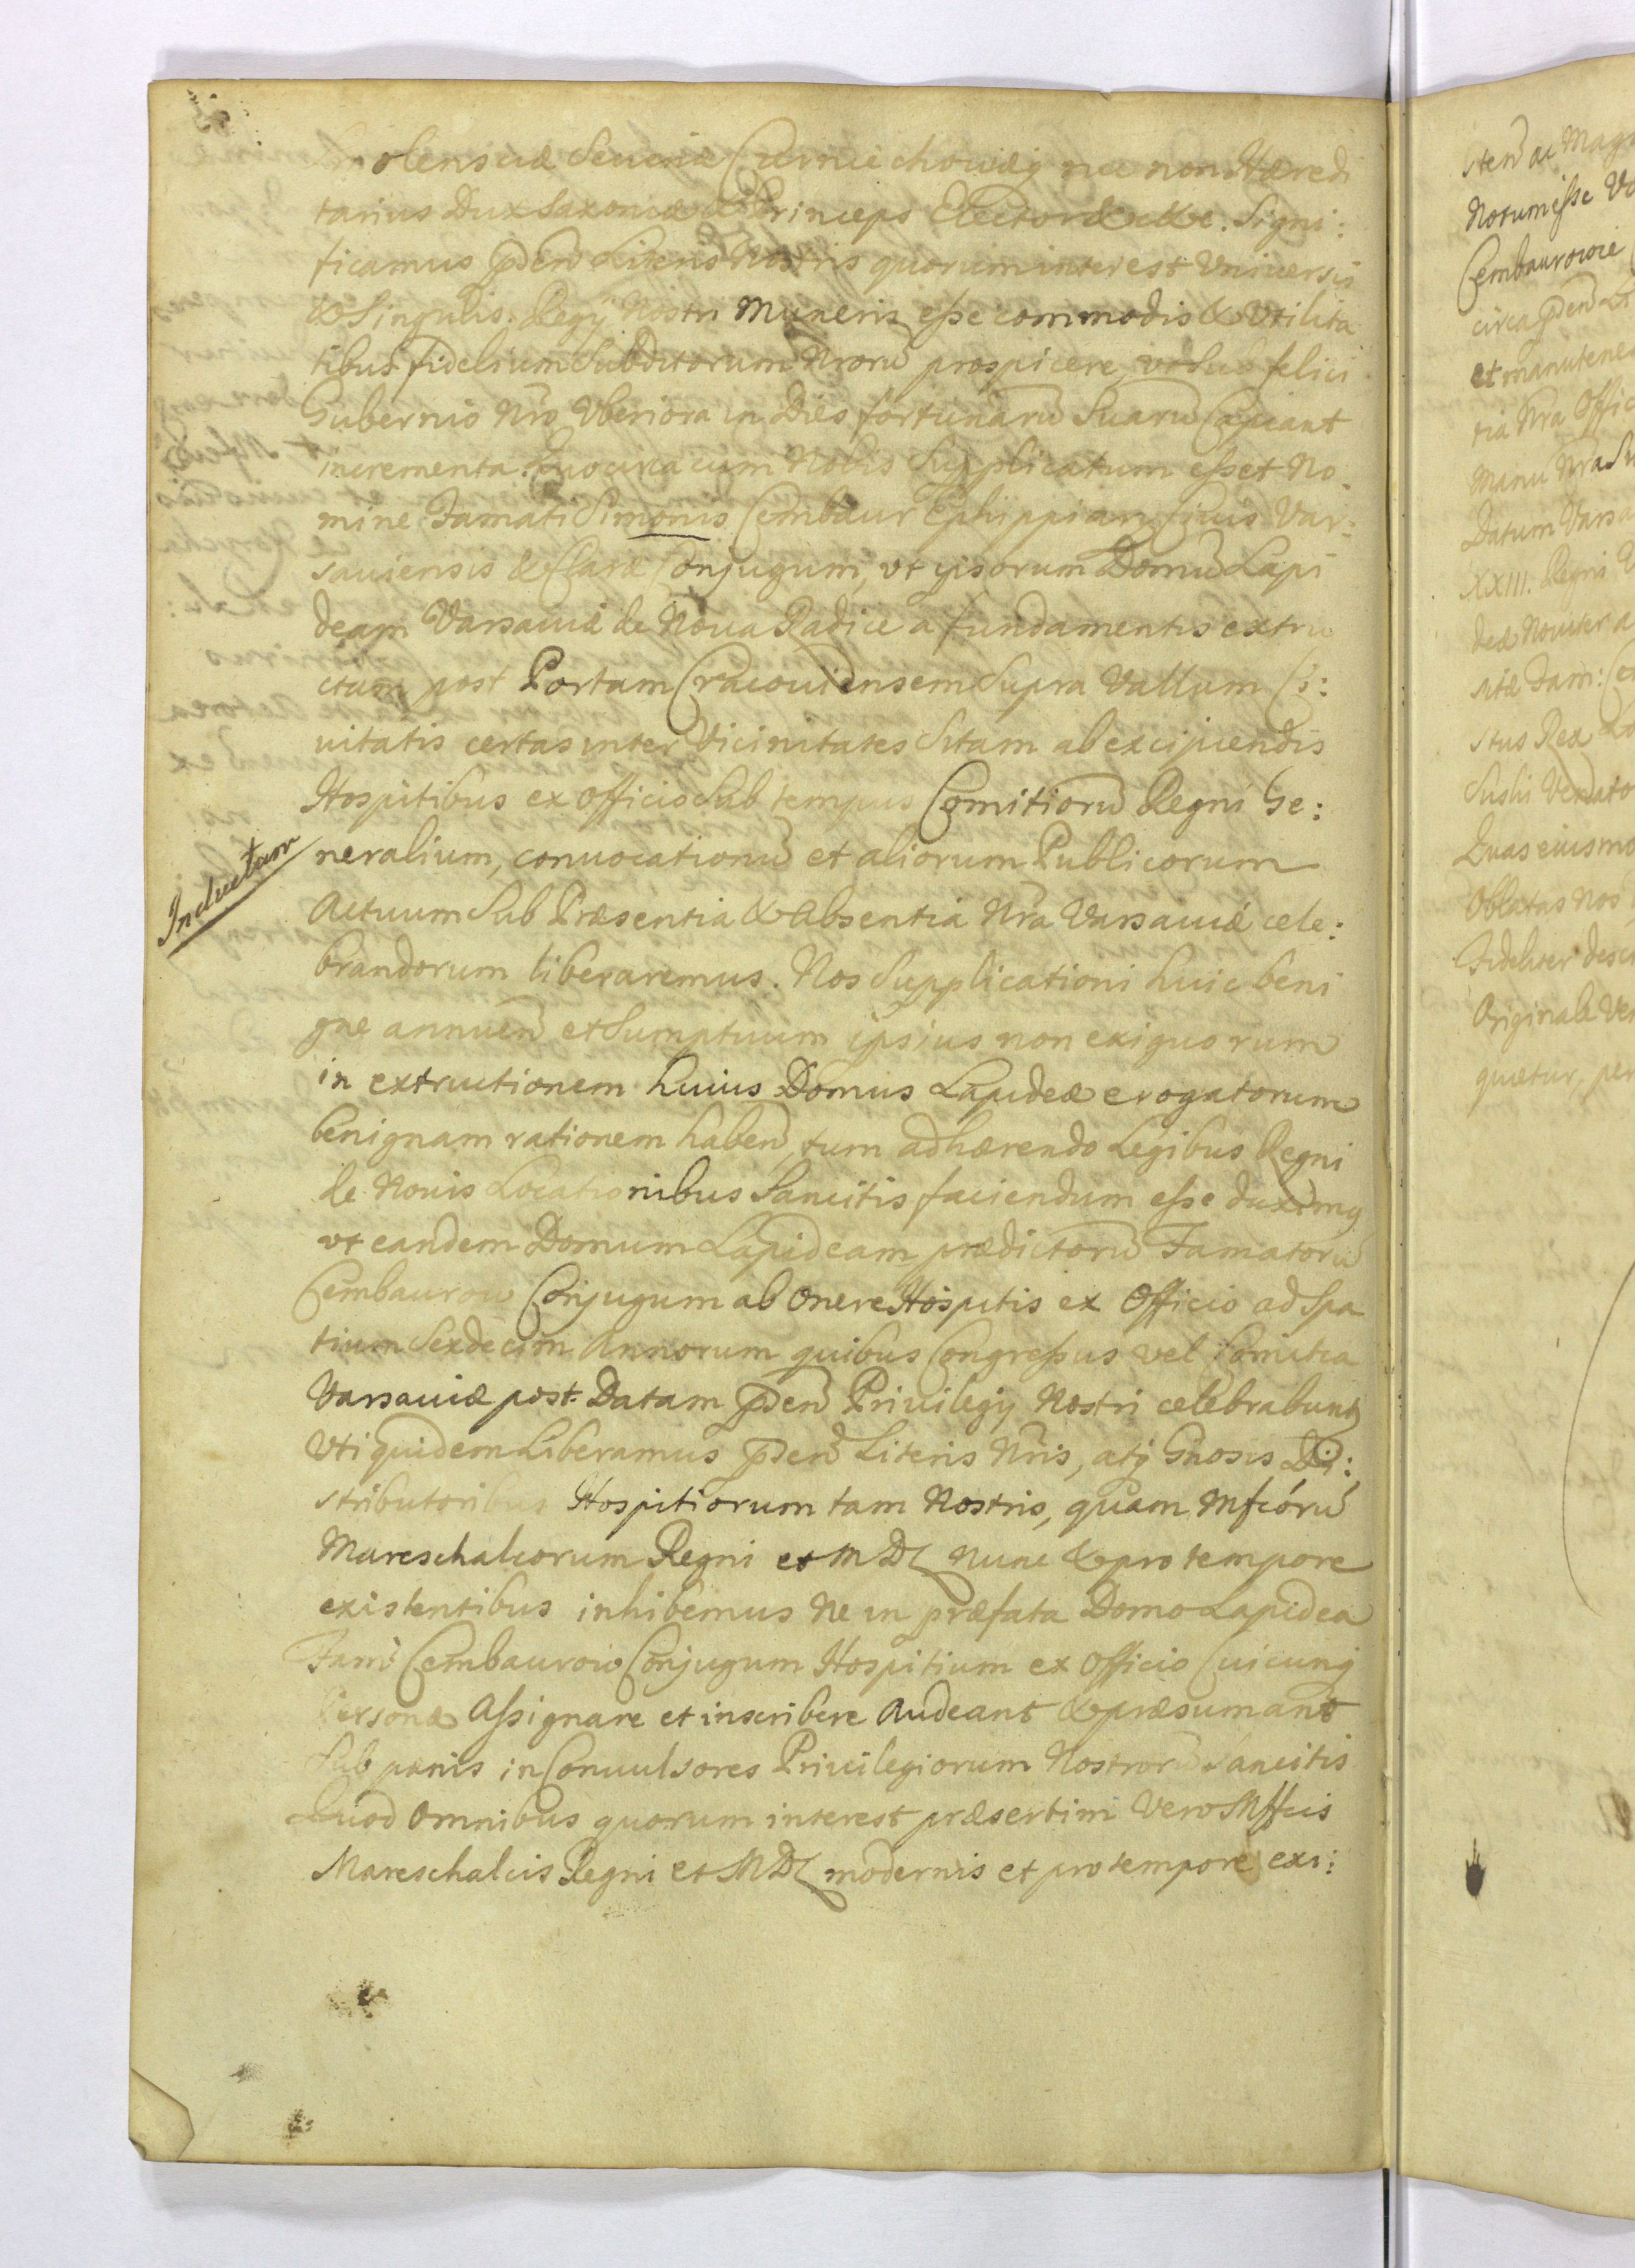 Smolensciæ Seveniæ Czerniechoviæq nec non Hæredi
tarius Dux Saxoniæ & Princeps Elector &c &c. Signi:
ficamus pñdenĩ Literis Nostris quorum interest Universis
& Singulis. Regÿ Nostri Muneris esse commodis & Utilita
tibus fidelium Subditorum Nrorũ prospicere, ut sub felici
Gubernio Nrõ Uberiora in Dies fortunarũ Suarũ Capiant
incrementa. Quocirca cum Nobis Supplicatum esset No
mine Famati Simonis Cembaur Ephippiarÿ Civis Var:
saviensis & Claræ Conjugum, ut ipsorum Domũ Lapi
deam Varsaviæ de Nova Radice a fundamentis extru
ctam post Portam Cracoviensem Supra Vallum Ci:
vitatis certas inter Vicinitates Sitam ab excipiendis
Hospitibus ex officio Sub tempus Comitiorũ Regni Ge:
neralium, convocationũ et aliorum Publicorum
Actuum Sub Præsentia & Absentia Nrã Varsaviæ cele:
brandorum liberaremus. Nos Supplicationi huic beni
gne annuenĩ et Sumptuum ipsius non exiguorum
in extructionem huius Domus Lapideæ erogatorum
benignam rationem habenĩ, tum adhærendo Legibus Regni
de Novis Locationibus Sancitis faciendum esse duximq
ut eandem Domum Lapideam prædictorũ Famatorũ
Cembaurow Conjugum ab Onere Hospitis ex Officio ad Spa
tium Sexdecim Annorum quibus Congressus vel Comitia
Varsaviæ post Datam pñdenĩ Privilegÿ Nostri celebrabuntʒ
Uti quidem Liberamus pñdenĩ Literis Nris, atq Gnosis Di:
stributoribus Hospitiorum tam Nostris, quam Mfcórũ
Mareschalcorum Regni et M D L Nunc & pro tempore
existentibus inhibemus Ne in præfata Domo Lapidea
Fam: Cembaurow Conjugum Hospitium ex Officio Cuicunq
Personæ Assignare et inscribere Audeant & præsumant
Sub pœnis in Convulsores Privilegiorum Nostrorũ Sancitis
Quod Omnibus quorum interest præsertim Vero Mffcis
Mareschalcis Regni et M D L modernis et pro tempore exi:
Inductum
sten ac Mag
Notum esse Vo
Cembaurowie
circa pñden Li
et manutene
tia Nra Offic
Manu Nra Su
Datum Varsa
XXIII. Regni
deæ Noviter a
sitæ Fam: Ce
stus Rex Lo
Sushi Venato
Quas eiusmo
Oblatas Nos
Fideliter desc
Originale Ver
quætur, per